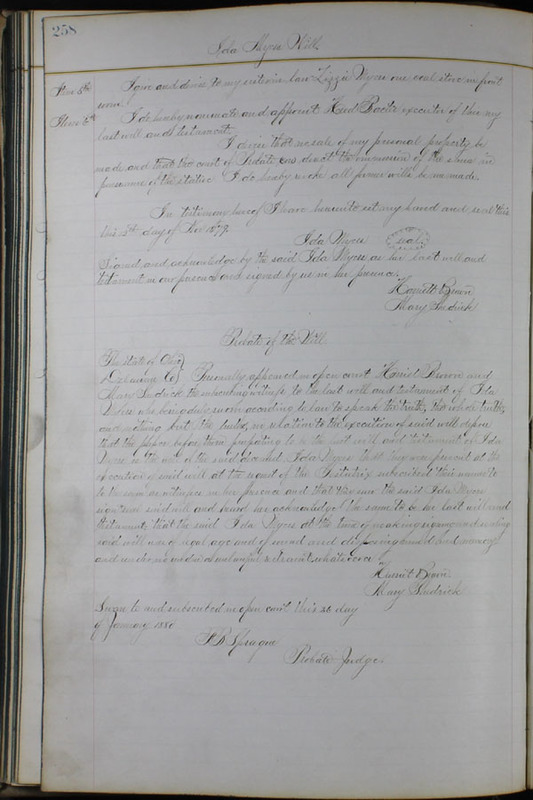 258
Ida Myers Will
Item 5th I give and devise to my sister in law Lizzie Myers one coal stove in front
room.
Item 6th I do hereby nominate and appoint executor of this my
last will and testament.
I desire that no sale of my personal property be
made and that the court of Probate direct the omission of the same in
pursuance of the statute. I do hereby revoke all former wills by me made.
In testimony hereof I have hereunto set my hand and seal this
this 5th day of 1879.
Ida Myers seal
Signed and acknowledged by the said Ida Myers as her last will and
testament in our presence and signed by us in her presence.
Harriett Brown
Mary
Probate of the Will.
The State of Ohio
Delaware Co} Personally appeared in open court Harriet Brown and
Mary the subscribing witnesses to the last will and testament of Ida
Myers who being duly sworn according to law to speak the truth, the whole truth,
and nothing but the truth, in relation to the execution of said will depose
that the paper before them purporting to be the last will and testament of Ida
Myers is the will of the said deceased Ida Myers that they were present at the
execution of said will at the request of the Testatrix subscribed their names to
to the same as witnesses in her presence and that they saw the said Ida Myers
sign said will and heard her acknowledge the same to be her last will and
testament, that the said Ida Myers at the time of making signing and sealing
said will was of legal age and of sound and disposing mind and memory
and under no undue or unlawful restraint whatsoever.
Harriet Brown
Mary
Sworn to and subscribed in open court this 26 day
of January 1880
Sprague
Probate Judge